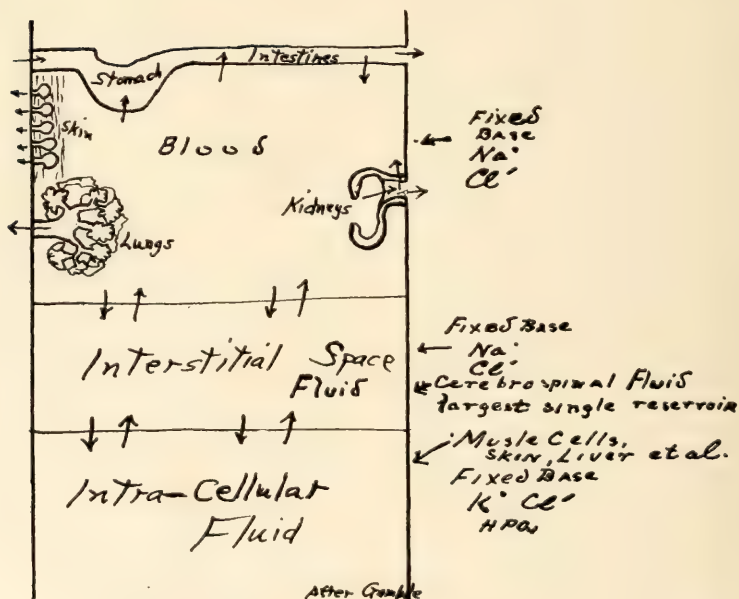 Intestines
Stomach
Skin
Blood
Kidneys
Lungs
Fixed
Base
Na·
Cl′
Interstitial Space
Fluid
Fixed Base
Na·
Cl′
Cerebrospinal Fluid
largest single reservoir
Intra-Cellular
Fluid
Musle Cells,
Skin, Liver et al.
Fixed Base
K· Cl′
HPO4
After Gamble